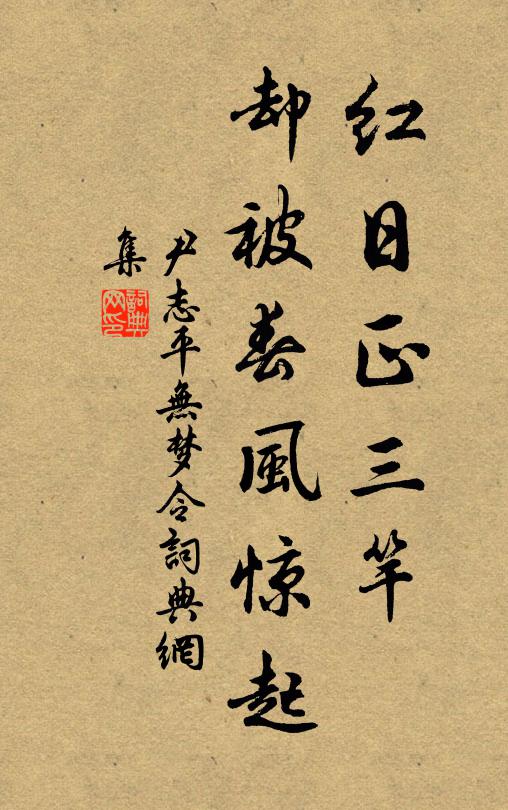 红日正三竿
却被春風惊起
尹志平無梦令詞典網
集
詞典
网印